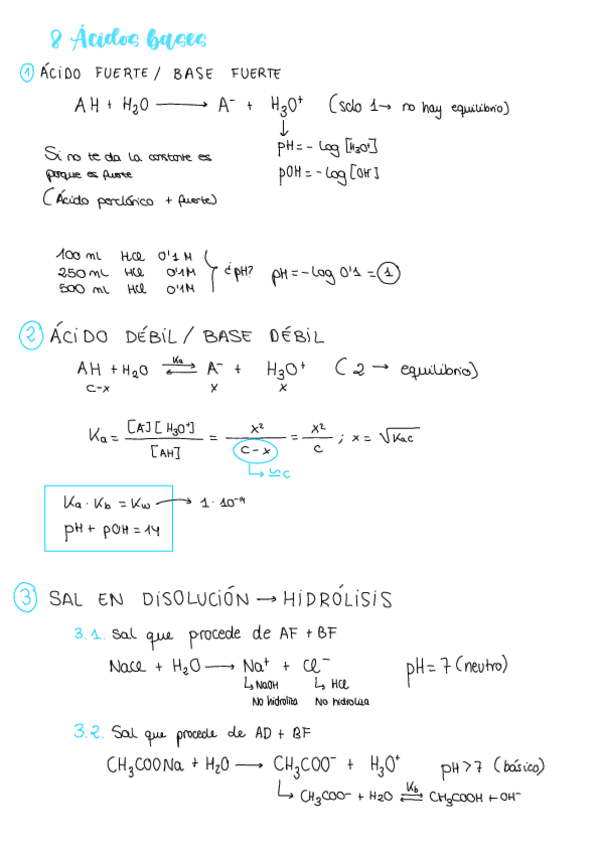 8 Ácidos bases
① ÁCIDO FUERTE / BASE FUERTE
AH + H₂O ⟶ A⁻ + H₃O⁺ (solo 1→ no hay equilibrio)
↓
pH = - log [H₃O⁺]
pOH = - log [OH⁻]
Si no te da la constante es
porque es fuerte
(Ácido perclórico + fuerte)
100 mL HCl 0'1 M
250 mL HCl 0'1M
500 mL HCl 0'1M
¿pH? pH = - log 0'1 = ①
② ÁCIDO DÉBIL / BASE DÉBIL
AH + H₂O ⇌ Ka A⁻ + H₃O⁺ (2 → equilibrio)
c-x x x
Ka = [A⁻][H₃O⁺] / [AH] = x² / c-x = x² / c ; x = √Kac
↳ ≃ c
Ka · Kb = Kw → 1·10⁻¹⁴
pH + pOH = 14
③ SAL EN DISOLUCIÓN → HIDRÓLISIS
3.1. Sal que procede de AF + BF
NaCl + H₂O ⟶ Na⁺ + Cl⁻ pH = 7 (neutro)
↳ NaOH ↳ HCl
No hidroliza No hidroliza
3.2. Sal que procede de AD + BF
CH₃COONa + H₂O ⟶ CH₃COO⁻ + H₃O⁺ pH > 7 (básico)
↳ CH₃COO⁻ + H₂O ⇌ Kb CH₃COOH + OH⁻